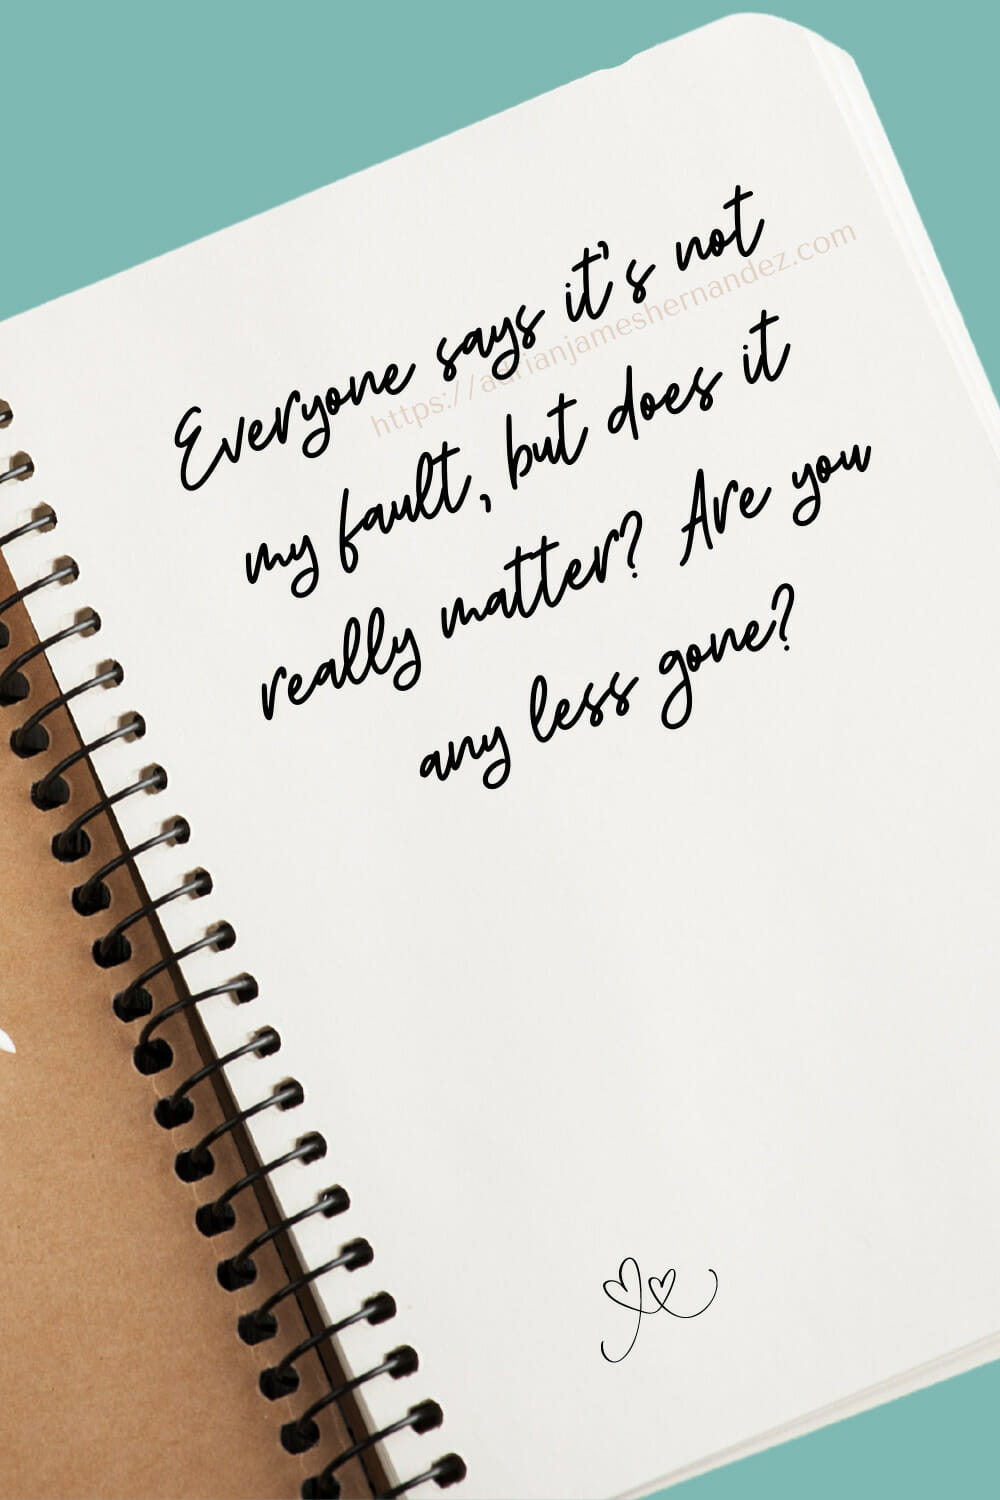 Everyone says it's not
https://adrianjameshernandez.com
my fault, but does it
really matter? Are you
any less gone?